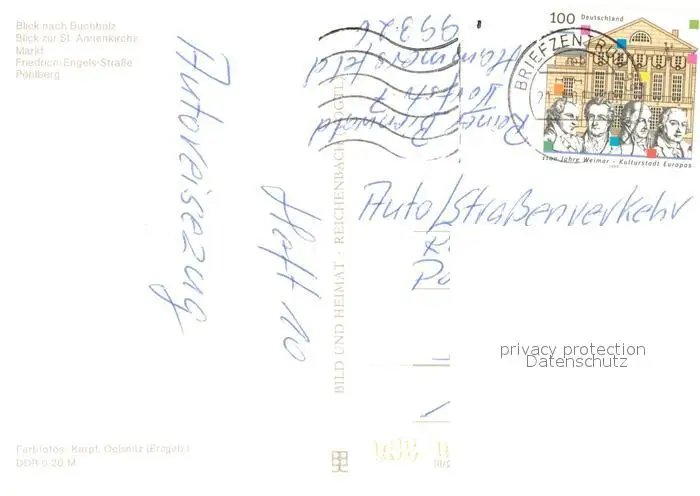 Blick nach Buchholz
Blick zur St. Annenkirche
Markt
Friedrich-Engels-Straße
Pöhlberg
Autoreisezug
Heft 10
BILD UND HEIMAT · REICHENBACH (VOGTL)
99326
Dorfstr. 7
100 Deutschland
BRIEFZENTRUM
1100 Jahre Weimar - Kulturstadt Europas
1999
Auto/Straßenverkehr
privacy protection
Datenschutz
Farbfotos: Karpf, Oelsnitz (Erzgeb.)
DDR 0,20 M